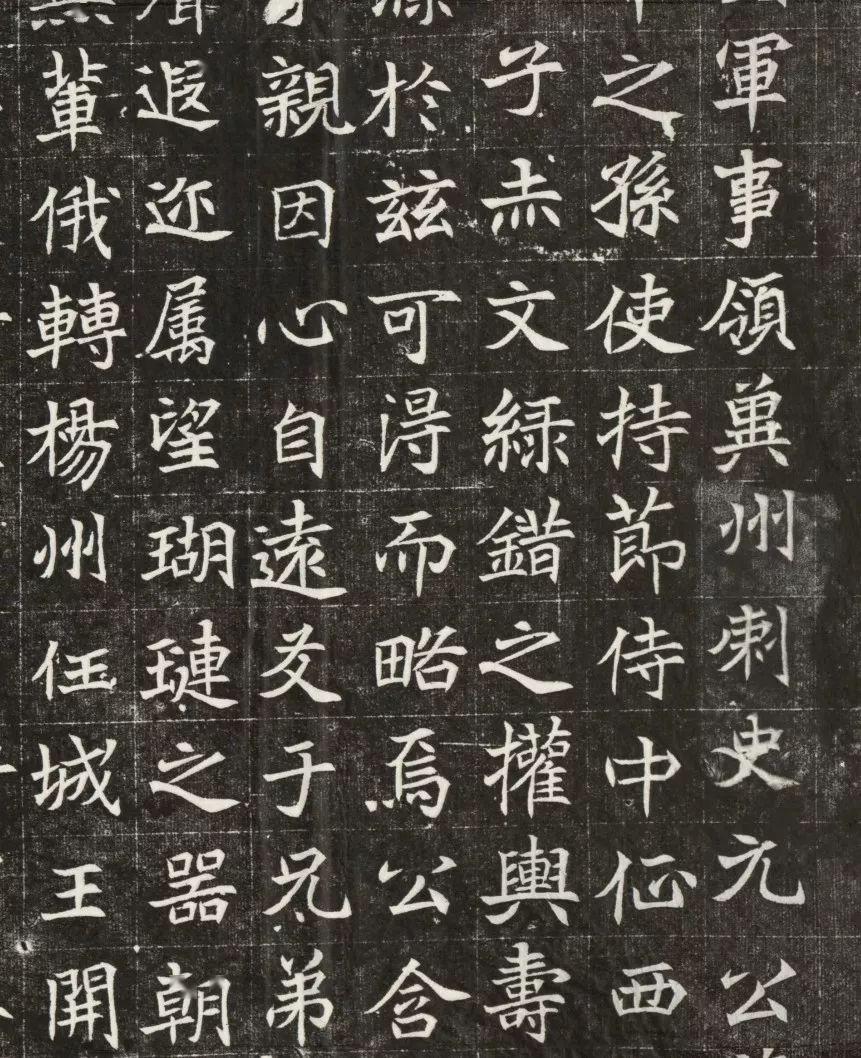 軍事領兾州刺史元公
之孫使持節侍中征西
子赤文緑錯之權輿壽
於兹可得而略焉公含
親因心自遠友于兄弟
遐迩属望瑚璉之器朝
輩俄轉楊州任城王開